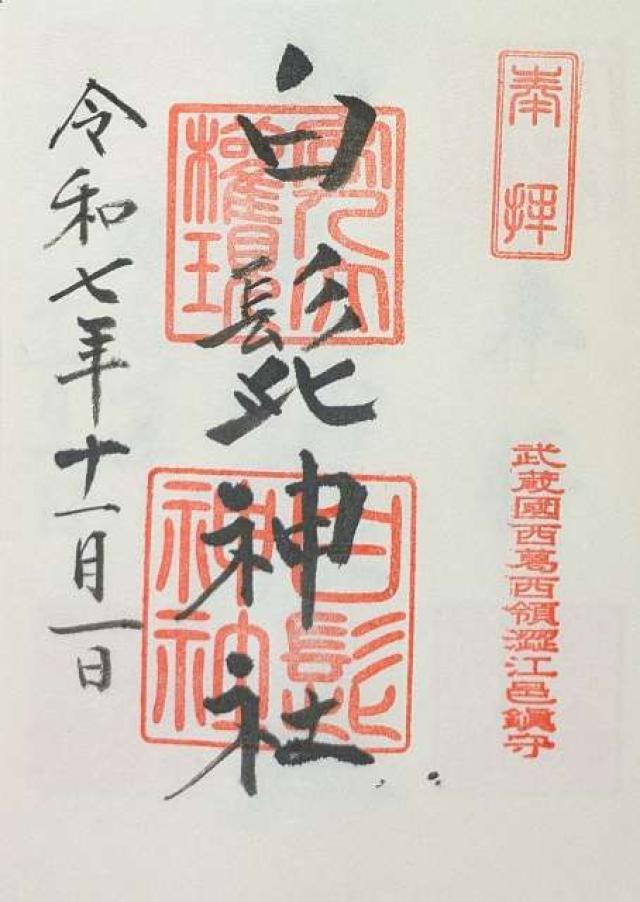 奉拝
武蔵國西葛西領澀江邑鎭守
白髭神社
客人大權現
白髭神社
令和七年十一月一日